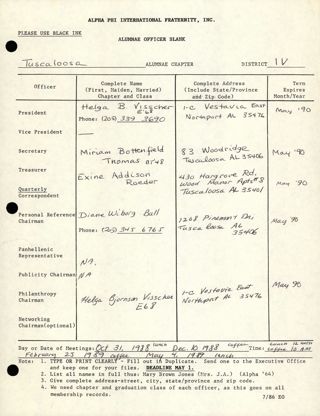 ALPHA PHI INTERNATIONAL FRATERNITY, INC.
PLEASE USE BLACK INK
ALUMNAE OFFICER BLANK
Tuscaloosa ALUMNAE CHAPTER DISTRICT IV
Officer
Complete Name
(First, Maiden, Married)
Chapter and Class
Complete Address
(Include State/Province
and Zip Code)
Term
Expires
Month/Year
President
Helga B. Visscher
E'68
Phone: (205) 339 3690
1-C Vestavia East
Northport AL 35476
May '90
Vice President
Secretary
Miriam Bottenfield
Thomas
83 Woodridge
Tuscaloosa AL 35406
May '90
Treasurer
Exine Addison
Roeder
430 Hargrove Rd.
Wood Manor Apt # 8
Tuscaloosa AL 35401
May '90
Quarterly
Correspondent
Personal Reference
Chairman
Diane Wiborg Ball
Phone: (205) 345 6765
1208 Pinemont Dr,
Tuscaloosa AL
35406
May 90
Panhellenic
Representative
NA.
Publicity Chairman NA
Philanthropy
Chairman
Helga Bjornson Visscher
E68
1-C Vestavia East
Northport AL 35476
May 90
Networking
Chairman(optional)
Day or Dates of Meeting: Oct 31, 1988 lunch Dec. 10 1988 coffee Time:
February 25 1989 coffee May 4, 1989 lunch
Note: 1. TYPE OR PRINT CLEARLY - Fill out in Duplicate. Send one to the Executive Office
and keep one for your files. DEADLINE MAY 1.
2. List all names in full thus: Mary Brown Jones (Mrs. J.A.) (Alpha '64)
3. Give complete address-street, city, state/province and zip code.
4. We need chapter and graduation class of each officer, as this goes on all
membership records.
7/86 EO